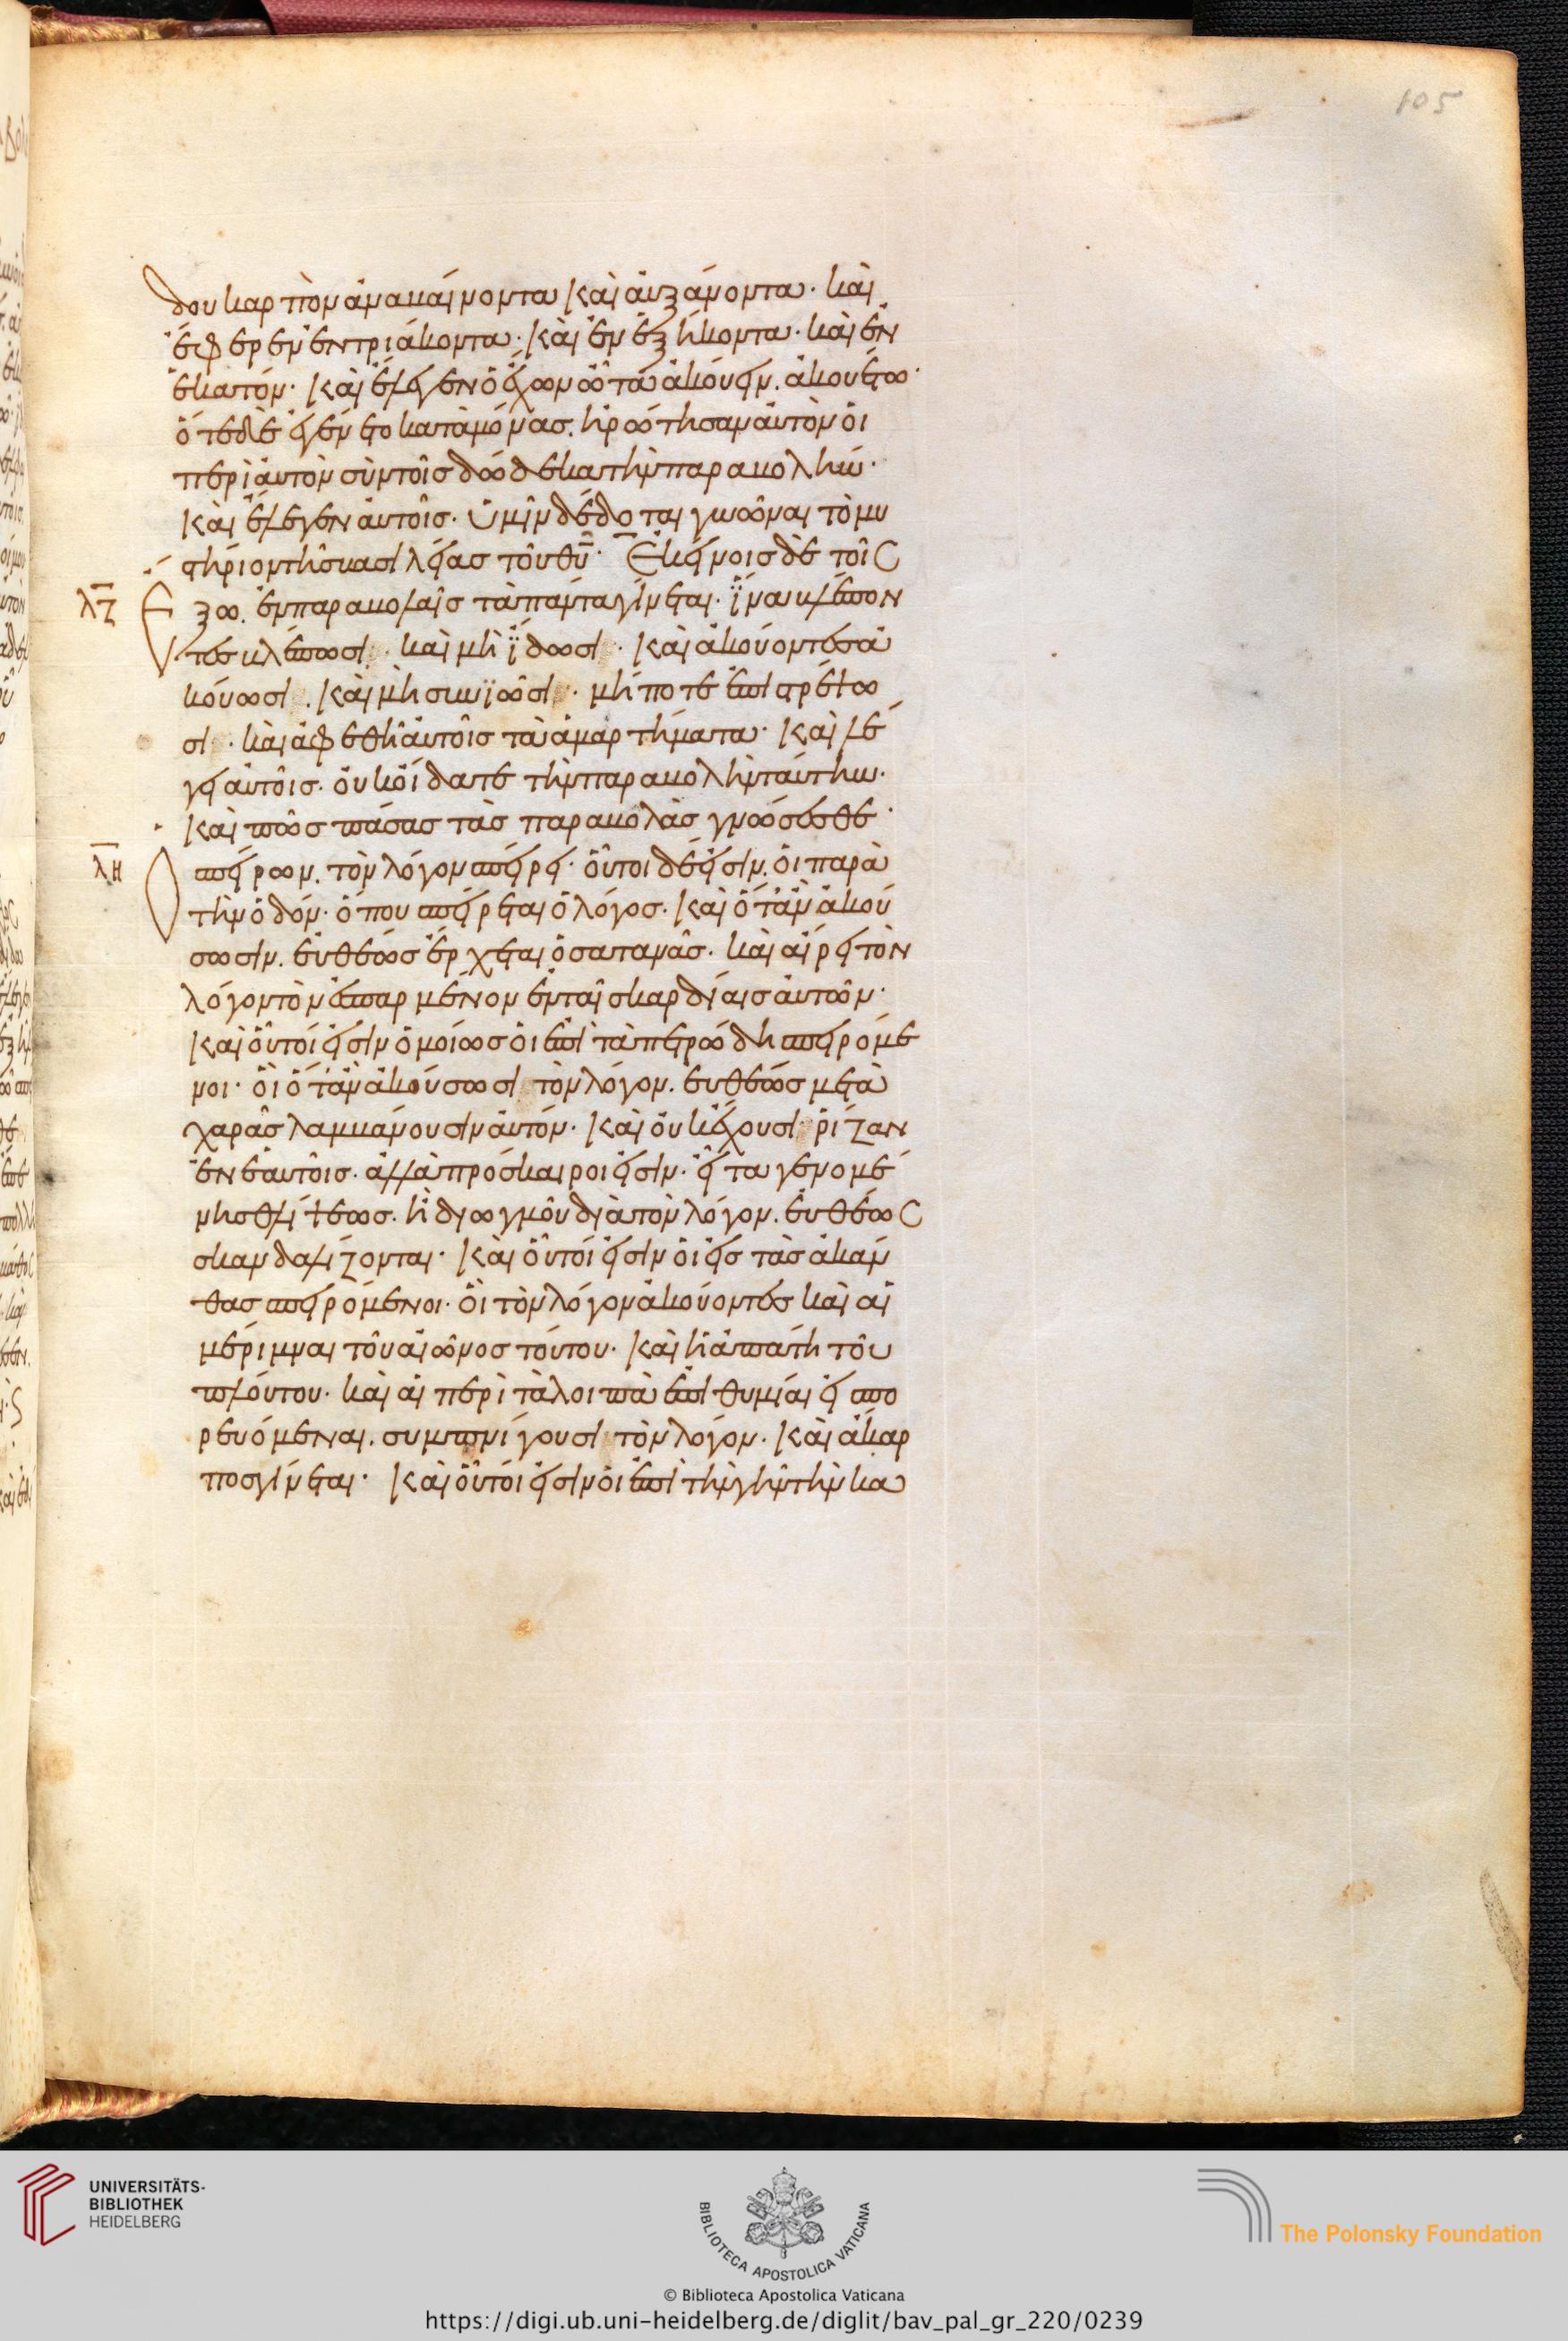 105
δου καρπὸν ἀναβαίνοντα καὶ ἀυξάνοντα· καὶ
ἔφερεν ἐν τριάκοντα· καὶ ἐν ἑξήκοντα· καὶ ἐν
ἑκατόν· καὶ ἔλεγεν ὁ ἔχων ὦτα ἀκούειν. ἀκουέτω·
ὅτε δὲ ἐγένετο καταμόνας. ἠρώτησαν ἀυτὸν ὁι
περὶ ἀυτὸν σὺν τοῖς δώδεκα τὴν παραβολήν·
καὶ ἔλεγεν ἀυτοῖς· ὑμῖν δέδοται γνῶναι τὸ μυ
στήριον τῆς βασιλείας τοῦ θ̅υ̅· Ἐκείνοις δὲ τοῖς
λ̅ζ̅ Ἔξω. ἐν παραβολαῖς τὰ πάντα γίνεται· ἵ̈να βλέπον
τες βλέπωσι· καὶ μὴ ἴ̈δωσι· καὶ ἀκούοντες ἀ
κούωσι. καὶ μὴ συνϊῶσι· μήποτε ἐπιστρέψω
σι· καὶ ἀφεθῆ ἀυτοῖς τὰ ἁμαρτήματα· καὶ λέ
γει ἀυτοῖς· ὀυκ ὀίδατε τὴν παραβολὴν ταύτην·
καὶ πῶς πάσας τὰς παραβολὰς γνώσεσθε·
λ̅η̅ Ὁ σπείρων. τὸν λόγον σπείρει· ὅυτοι δέ εἰσιν. ὁι παρὰ
τὴν ὁδόν· ὅπου σπείρεται ὁ λόγος· καὶ ὅταν ἀκού
σωσιν. ἐυθέως ἔρχεται ὁ σατανᾶς· καὶ ἀίρει τὸν
λόγον τὸν ἐσπαρμένον ἐν ταῖς καρδίαις ἀυτῶν·
καὶ ὅυτοί εἰσιν ὁμοίως ὁι ἐπὶ τὰ πετρώδη σπειρόμε
νοι· ὁὶ ὅταν ἀκούσωσι τὸν λόγον. ἐυθέως μετὰ
χαρᾶς λαμβάνουσιν ἀυτόν· καὶ ὀυκ ἔχουσι ῥίζαν
ἐν ἑαυτοῖς· ἀλλὰ πρόσκαιροι εἰσιν· εἶτα γενομέ
νης θλίψεως· ἢ διωγμοῦ διὰ τὸν λόγον. ἐυθέως
σκανδαλίζονται· καὶ ὅυτοί εἰσιν ὁι εἰς τὰς ἀκάν
θας σπειρόμενοι· ὁὶ τὸν λόγον ἀκούοντες καὶ αἱ
μέριμναι τοῦ αἰῶνος τούτου· καὶ ἡ ἀπάτη τοῦ
πλούτου· καὶ αἱ περὶ τὰ λοιπὰ ἐπιθυμίαι εἰσπο
ρευόμεναι. συμπνίγουσι τὸν λόγον· καὶ ἄκαρ
πος γίνεται· καὶ ὅυτοι εἰσιν ὁι ἐπὶ τὴν γῆν τὴν κα
UNIVERSITÄTS-
BIBLIOTHEK
HEIDELBERG
BIBLIOTECA APOSTOLICA VATICANA
The Polonsky Foundation
© Biblioteca Apostolica Vaticana
https://digi.ub.uni-heidelberg.de/diglit/bav_pal_gr_220/0239